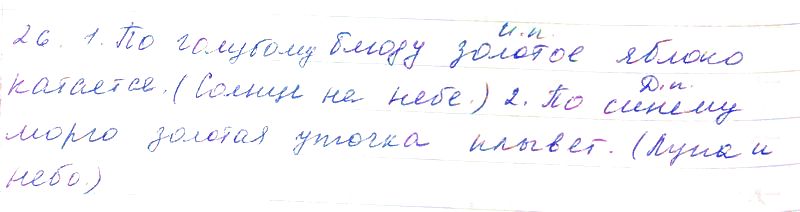 И.п.
26. 1. По голубому блюду золотое яблоко
катается. (Солнце на небе.) 2. По синему
Д.п.
морю золотая уточка плывет. (Луна и
небо.)